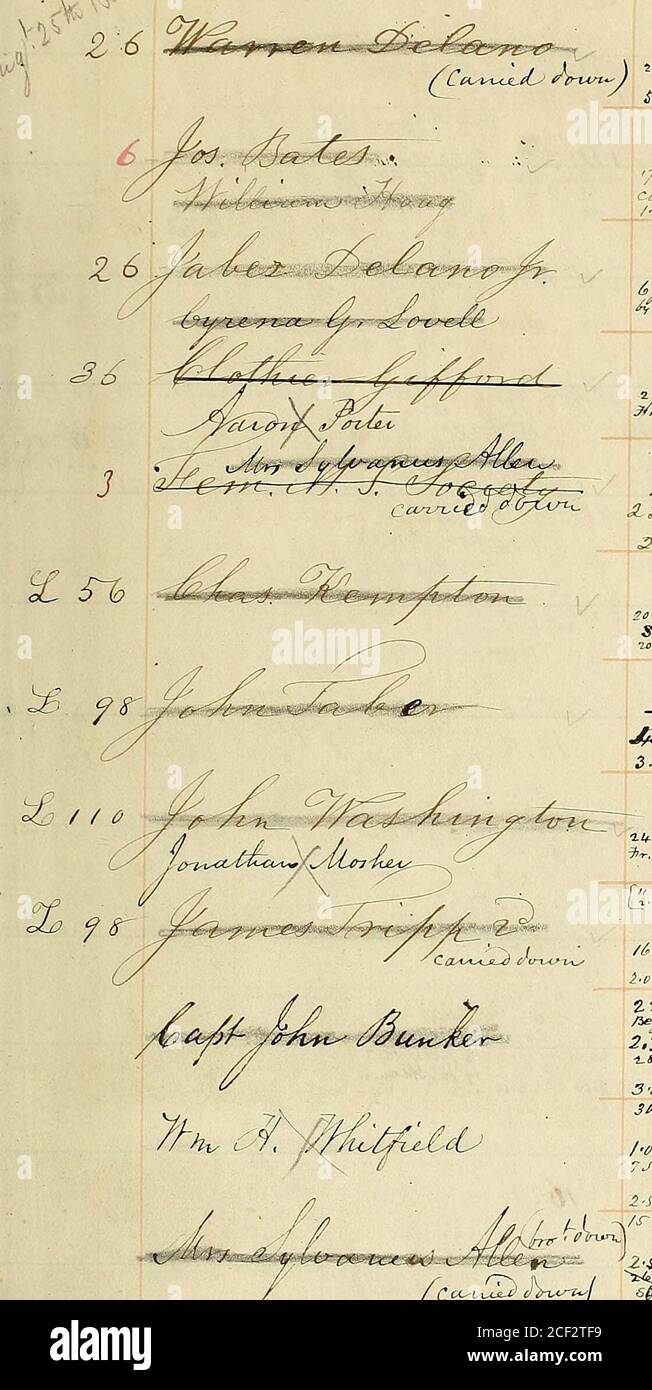 26 Warren Delano
(Carried down)
6 Jos. Bates
William
26 Jabez Delano Jr.
Cyrena G. Lovell
36 Clothier Gifford
Aaron Porter
Mrs Sylvanus Allen
3 Fem. M. S. Society
carried down
L 56 Chas. Kempton
L 98 John Taber
L 110 John Washington
Jonathan Mosher
L 98 James Tripp 2d
carried down
Capt John Bunker
Wm H. Whitfield
Mrs Sylvanus Allen (bro't down)
(carried down)
alamy
Image ID: 2CF2TF9
www.alamy.com